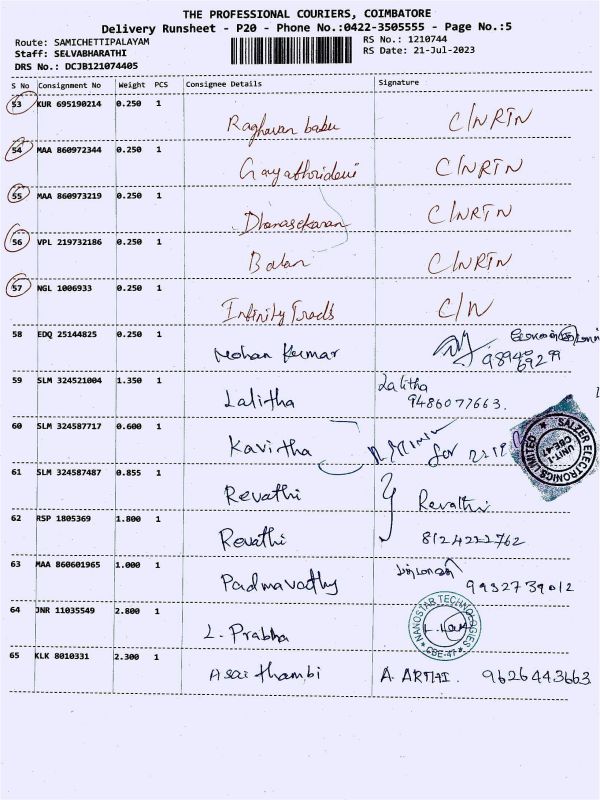 THE PROFESSIONAL COURIERS, COIMBATORE
Delivery Runsheet - P20 - Phone No.:0422-3505555 - Page No.:5
Route: SAMICHETTIPALAYAM
Staff: SELVABHARATHI
DRS No.: DCJB121074405
RS No.: 1210744
RS Date: 21-Jul-2023
S No Consignment No Weight PCS Consignee Details Signature
53 KUR 695190214 0.250 1
Raghavan babu C/NRTN
54 MAA 860972344 0.250 1
Gayathridevi C/NRTN
55 MAA 860973219 0.250 1
Dhanasekaran C/NRTN
56 VPL 219732186 0.250 1
Balan C/NRTN
57 NGL 1006933 0.250 1
Infinity Trads C/N
58 EDQ 25144825 0.250 1
Mohan Kumar
59 SLM 324521004 1.350 1 Lalitha
Lalitha 9486077663.
60 SLM 324587717 0.600 1
Kavitha for
SALZER ELECTRONICS LIMITED
UNIT-1
CBE-47
61 SLM 324587487 0.855 1
Revathi Revathi
62 RSP 1805369 1.800 1
Revathi 8124222762
63 MAA 860601965 1.000 1
Padmavathy 9932739012
64 JNR 11035549 2.800 1
L. Prabha
NANOSTAB TECHNOLOGIES
CBE-47
65 KLK 8010331 2.300 1
Asaithambi A. ARTHI. 9626443663